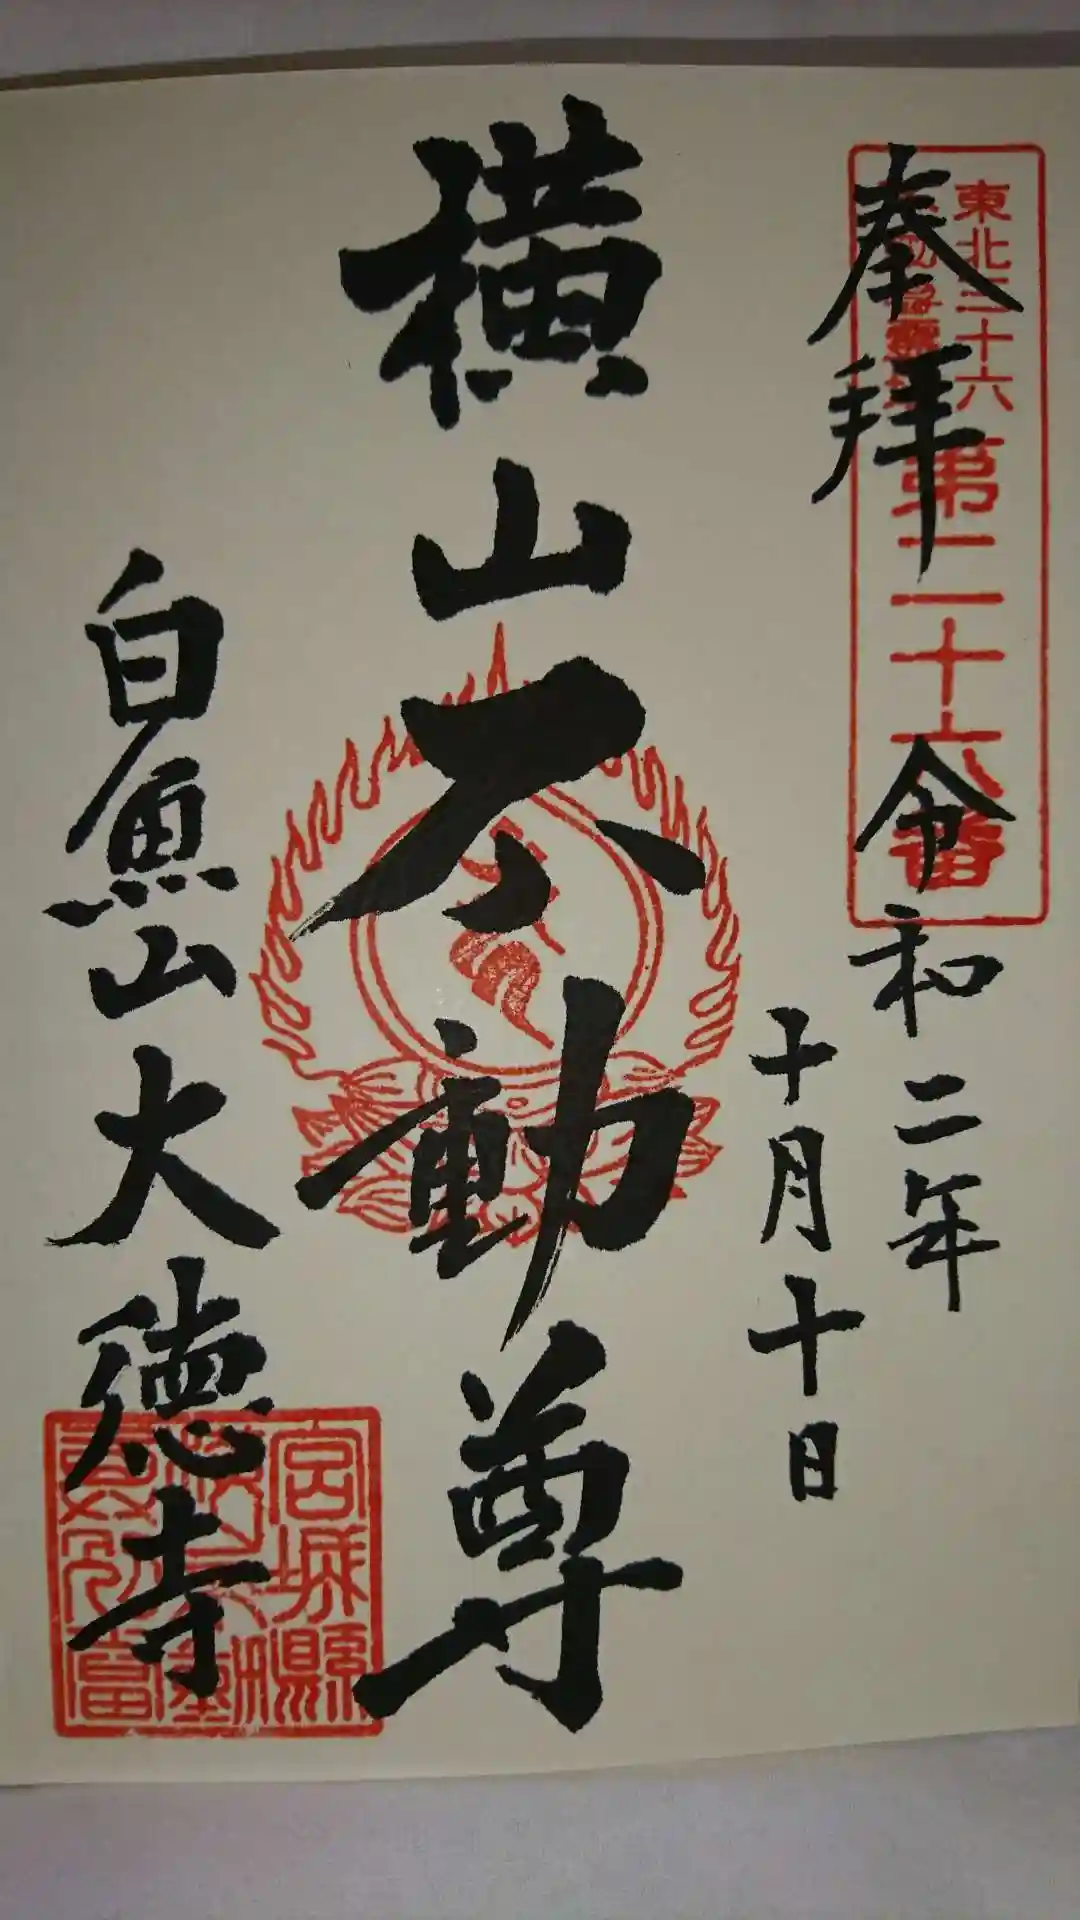 奉拝
東北三十六
不動尊霊場
第二十六番
令和二年
十月十日
横山不動尊
白魚山大徳寺
宮城縣